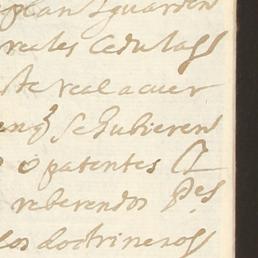 plan y guarden
reales cedulas
ste real acuer
enq̃ se hubieren
o patentes
reberendos Pes
los doctrineros